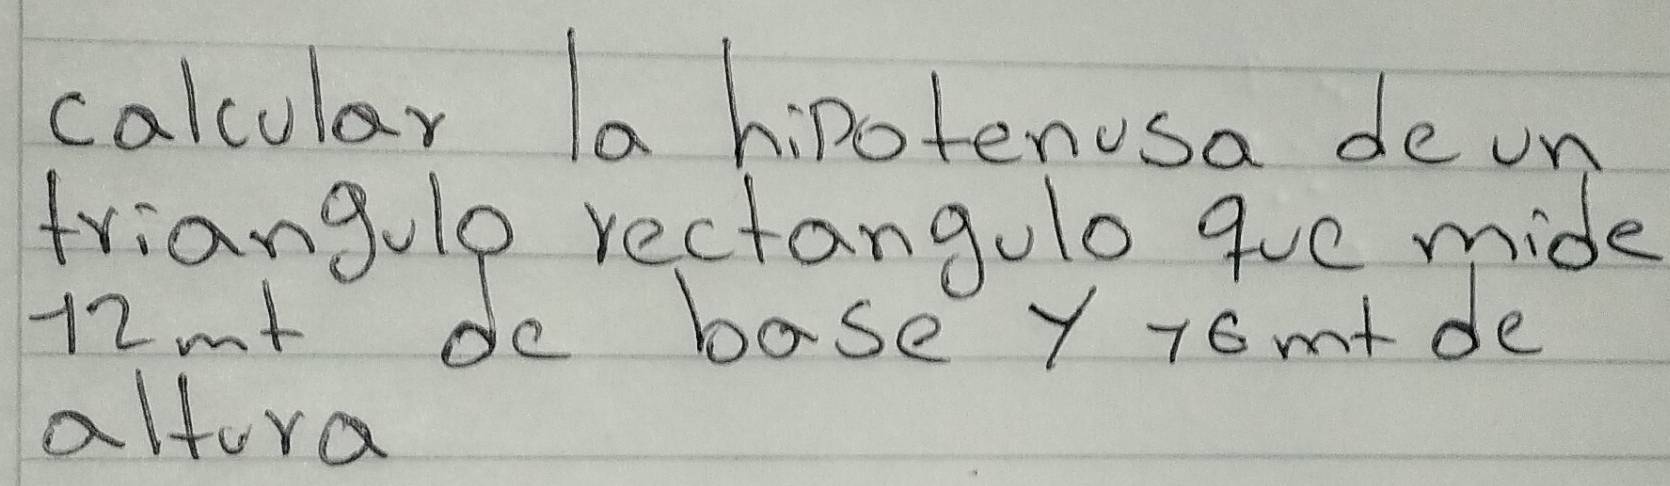 calcular la hipotenusa de un
triangulo rectangulo que mide
12mt de base y 16mt de
altura